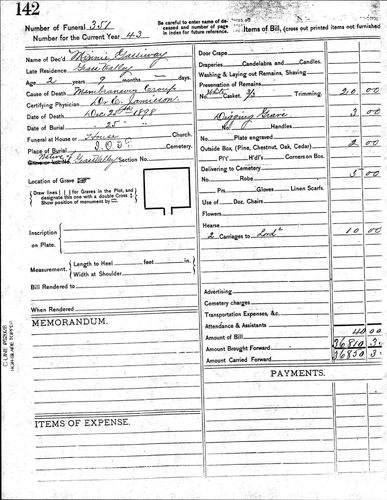 142
Number of Funeral 351
Number for the Current Year 43
Be careful to enter name of deceased and number of page in index for future reference.
Items of Bill, (cross out printed items not furnished
Name of Dec'd Minnie Galliway
Late Residence Grass Valley
Age 2 years 9 months — days
Cause of Death Membraneous Croup
Certifying Physician Dr C. Jamison
Date of Death Dec 25th 1898
Date of Burial 25 "
Funeral at House or House Church.
Place of Burial I.O.O.F. Cemetery.
Native of Grass Valley Section No.
Location of Grave
Draw lines [ ] for Graves in the Plot, and
designate this one with a double Cross
Show position of monument by
Inscription
on Plate.
Measurement. Length to Heel feet in.
Width at Shoulder
Bill Rendered to
When Rendered
MEMORANDUM.
ITEMS OF EXPENSE.
Door Crape
Draperies Candelabra and Candles.
Washing & Laying out Remains, Shaving
Preservation of Remains
No. White Casket, 3/3 Trimming. 20 00
Digging Grave 3 00
No. Handles
Plate engraved
Outside Box, (Pine, Chestnut, Oak, Cedar) 2 00
Pl't H'dl's Corners on Box.
Delivering to Cemetery 5 00
No. Robe
Prs. Gloves Linen Scarfs.
Use of Doz. Chairs
Flowers
Hearse
2 Carriages to 10 00
Advertising
Cemetery charges
Transportation Expenses, &c.
Attendance & Assistants
Amount of Bill 40 00
Amount Brought Forward 36810 3
Amount Carried Forward 36850 3
PAYMENTS.